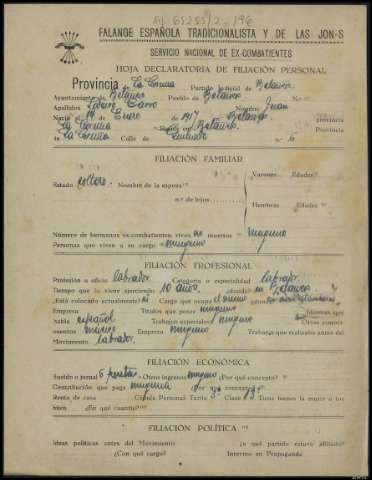 FALANGE ESPAÑOLA TRADICIONALISTA Y DE LAS JON-S
SERVICIO NACIONAL DE EX-COMBATIENTES
HOJA DECLARATORIA DE FILIACIÓN PERSONAL
Provincia de La Coruña Partido judicial de Betanzos
Ayuntamiento de Betanzos Pueblo de Betanzos
Apellidos Nombre Juan
Nació el 14 Enero de 1917 Betanzos Provincia
La Coruña en Betanzos provincia
La Coruña Calle de n.º 6
FILIACIÓN FAMILIAR
Varones Edades?
Estado soltero Nombre de la esposa
n.º de hijos
Hembras Edades
Número de hermanos ex-combatientes, vivos no muertos ninguno
Personas que viven a su cargo ninguno
FILIACIÓN PROFESIONAL
Profesión u oficio labrador Categoría o especialidad labrador
Tiempo que lo viene ejerciendo 10 años ¿En dónde? en Betanzos
¿Está colocado actualmente? si Cargo que ocupa el mismo
Empresa Títulos que posee ninguno Idiomas que
habla español Trabajos especiales ninguno Otros conoci-
mientos Empresa ninguno Trabajo que realizaba antes del
Movimiento labrador
FILIACIÓN ECONÓMICA
Sueldo o jornal 5 pesetas Otros ingresos ninguno ¿Por qué concepto?
Contribución que paga ninguna ¿Por qué concepto?
Renta de casa Cédula Personal Tarifa 3ª Clase Tiene bienes la mujer o los
hijos ¿En qué cuantía?
FILIACIÓN POLÍTICA
Ideas políticas antes del Movimiento ¿a qué partido estuvo afiliado?
¿Con qué cargo? Intervino en Propaganda